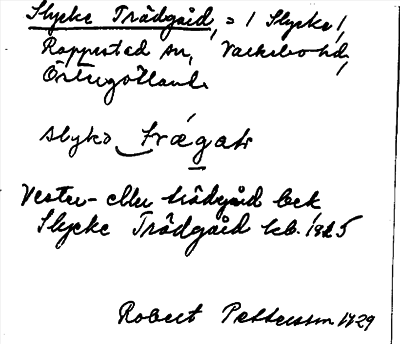 Slycke Trädgård, = 1 Slycke,
Rappestad sn, Valkebo hd,
Östergötland
slykə trægaɽ
Vester- eller trädgård bek
Slycke Trädgård kb. 1825
Robert Pettersson 1929